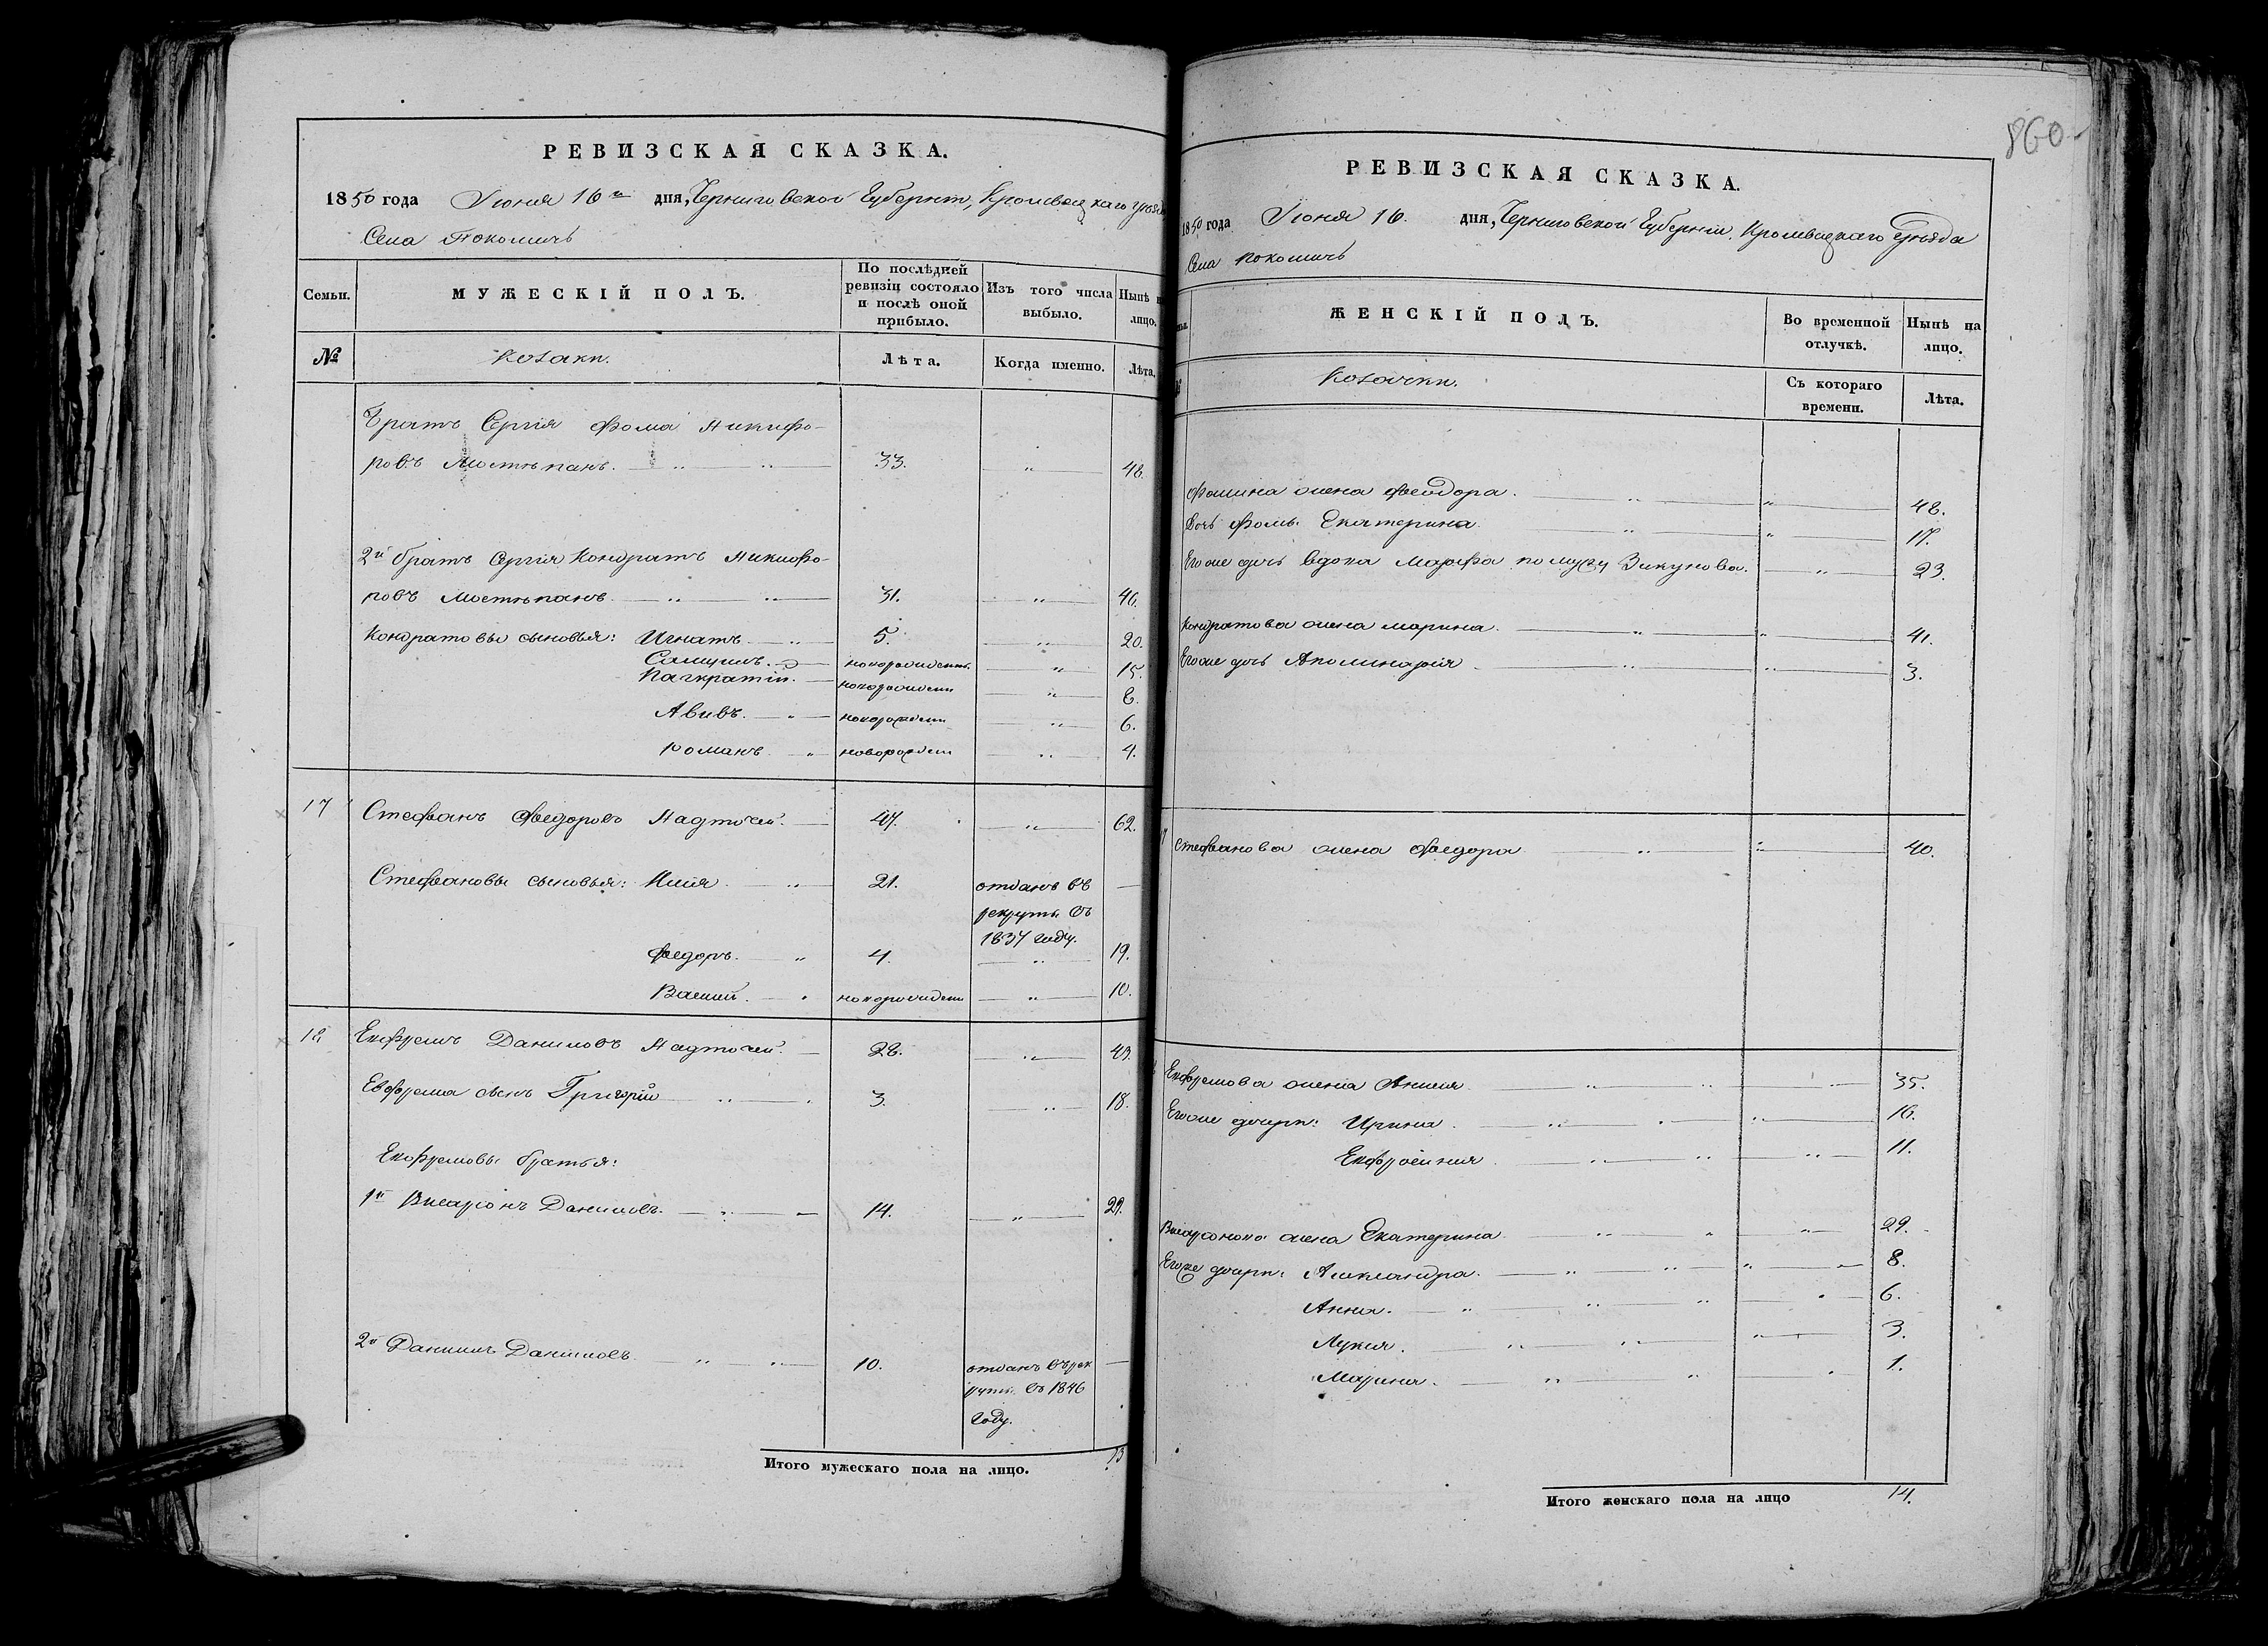 РЕВИЗСКАЯ СКАЗКА.
1850 года Іюня 16го дня, Черниговской Губерніи, Кролевецкаго уѣзда
Села Покошичь
Семьи.
МУЖЕСКІЙ ПОЛЪ.
По послѣдней ревизіи состояло и послѣ оной прибыло.
Изъ того числа выбыло.
Нынѣ на лицо.
№
Козаки.
Лѣта.
Когда именно.
Лѣта.
Братъ Сергія Фома Никифо-
ровъ Мостѣпанъ. 33. 48.
2й братъ Сергія Кондратъ Никифо-
ровъ Мостѣпанъ 31. 46.
Кондратовы сыновья: Игнатъ 5. 20.
Самуилъ. новорожденъ 15.
Панкратій. новорожденъ 8.
Авивъ. новорожденъ 6.
Романъ новорожден 4.
17 Стефанъ Федоровъ Надточей. 47. 62.
Стефановы сыновья: Илія 21. отданъ въ —
рекруты въ
1837 году.
Федоръ. 4. 19.
Василій. новорожденъ 10.
18 Евфремъ Даниловъ Надточей. 28. 43.
Евфрема сынъ Григорій 3. 18.
Евфремовы братья:
1й Висаріонъ Даниловъ. 14. 29.
2й Даниилъ Даниловъ 10. отданъ въ рек —
руты въ 1846
году.
Итого мужескаго пола на лицо. 13
860
РЕВИЗСКАЯ СКАЗКА.
1850 года Іюня 16. дня, Черниговской Губерніи, Кролевецкаго уѣзда
Села Покошичь
ЖЕНСКІЙ ПОЛЪ.
Во временной отлучкѣ.
Нынѣ на лицо.
Козачки.
Съ котораго времени.
Лѣта.
Фомина жена Феодора. 48.
Дочь Фомы Екатерина 17.
Егоже дочь вдова Марфа по мужу Зикунова. 23.
Кондратова жена Марина. 41.
Егоже дочь Аполинарія 3.
Стефанова жена Федора 40.
Евфремова жена Акилія 35.
Егоже дочери: Ирина 16.
Евфросинія 11.
Висаріонова жена Екатерина 29.
Егоже дочери: Александра. 8.
Анна. 6.
Лукія. 3.
Марина. 1.
Итого женскаго пола на лицо 14.